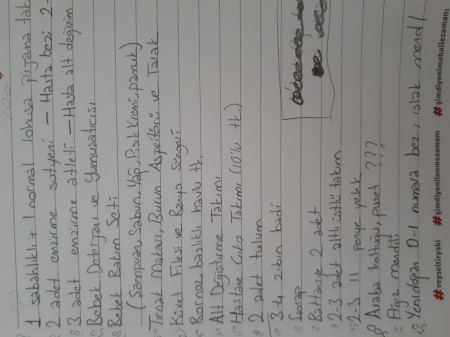 1 sabahlıklı + 1 normal lohusa pijama tak
2 adet emzirme sutyeni — Hasta bezi 2-
3 adet emzirme atleti — Hasta alt değişim
Bebek Deterjanı ve Yumuşatıcısı
Bebek Bakım Seti
(Şampuan, Sabun, Yağ, Pişik Kremi, pamuk)
Tırnak Makası, Burun Aspiratörü ve Tarak
Küvet Filesi ve Banyo Süngeri
Bornoz, başlıklı havlu tk.
Alt Değiştirme Takımı
Hastane Çıkış Takımı (10'lu tk.)
2 adet tulum
3-4 zıbın badi
Çorap
Battaniye 2 adet
2-3 adet altlı üstlü takım
2-3 penye yelek
Araba koltuğu, puset ???
Ağız mendili
Yenidoğan 0-1 numara bez, ıslak mendil
#veyseltiryaki #şimdiyenilenmezamanı #şimdiyenimahallezamanı